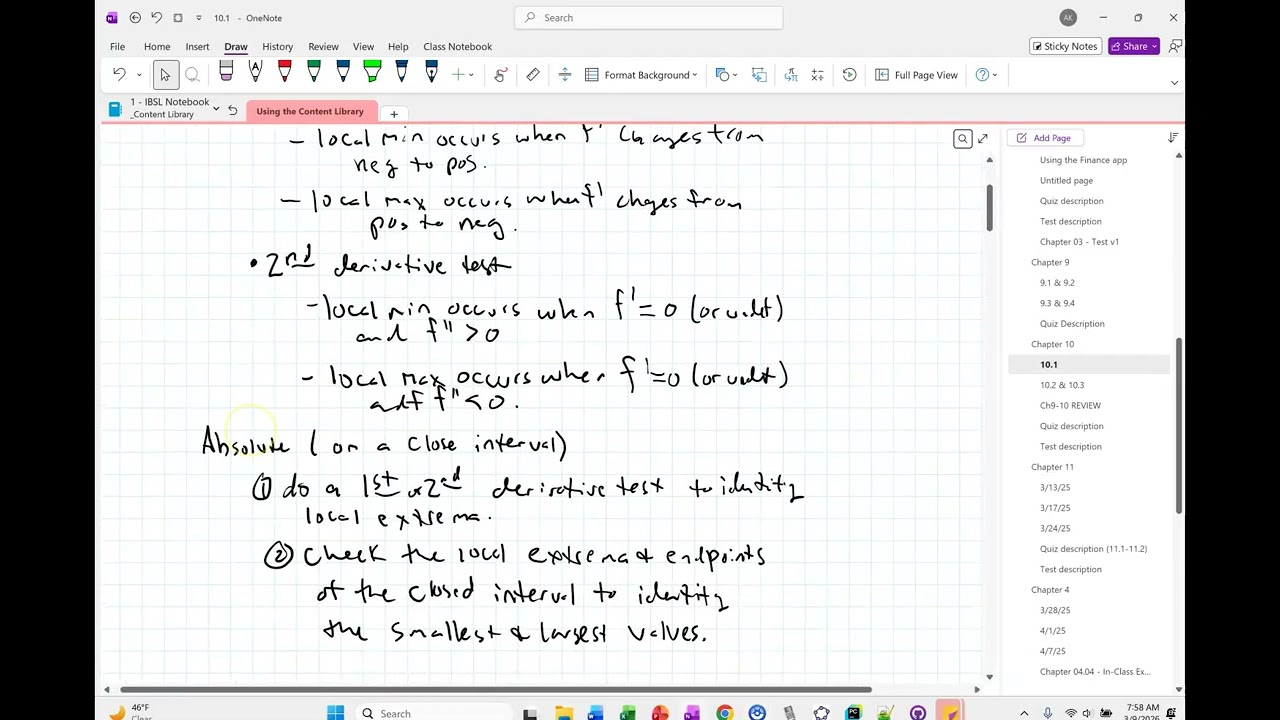 10.1 - OneNote
Search
AK
File Home Insert Draw History Review View Help Class Notebook
Sticky Notes
Share
Format Background
Full Page View
1 - IBSL Notebook
_Content Library
Using the Content Library
Add Page
- local min occurs when f' changes from
neg to pos.
- local max occurs when f' chages from
pos to neg.
• 2nd derivative test
- local min occurs when f' = 0 (or undet)
and f" > 0
- local max occurs when f' = 0 (or undet)
and f" < 0.
Absolute ( on a close interval)
① do a 1st or 2nd derivative test to identity
local extrema.
② check the local extrema & endpoints
of the closed interval to identity
the smallest & largest values.
Using the Finance app
Untitled page
Quiz description
Test description
Chapter 03 - Test v1
Chapter 9
9.1 & 9.2
9.3 & 9.4
Quiz Description
Chapter 10
10.1
10.2 & 10.3
Ch9-10 REVIEW
Quiz description
Test description
Chapter 11
3/13/25
3/17/25
3/24/25
Quiz description (11.1-11.2)
Test description
Chapter 4
3/28/25
4/1/25
4/7/25
Chapter 04.04 - In-Class Ex...
46°F
Clear
Search
7:58 AM
3/9/2026